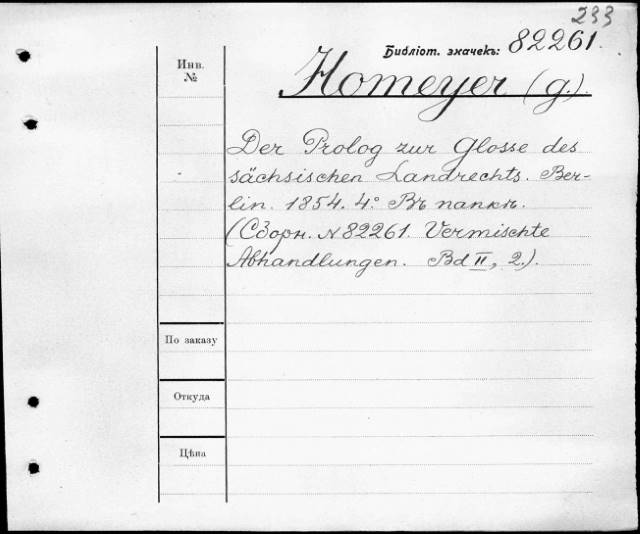 233
Библіот. значекъ: 82261.
Инв.
№
Homeyer (G.).
Der Prolog zur Glosse des
sächsischen Landrechts. Ber-
lin. 1854. 4.° Въ папкѣ.
(Сборн. N 82261. Vermischte
Abhandlungen. Bd II, 2.).
По заказу
Откуда
Цѣна